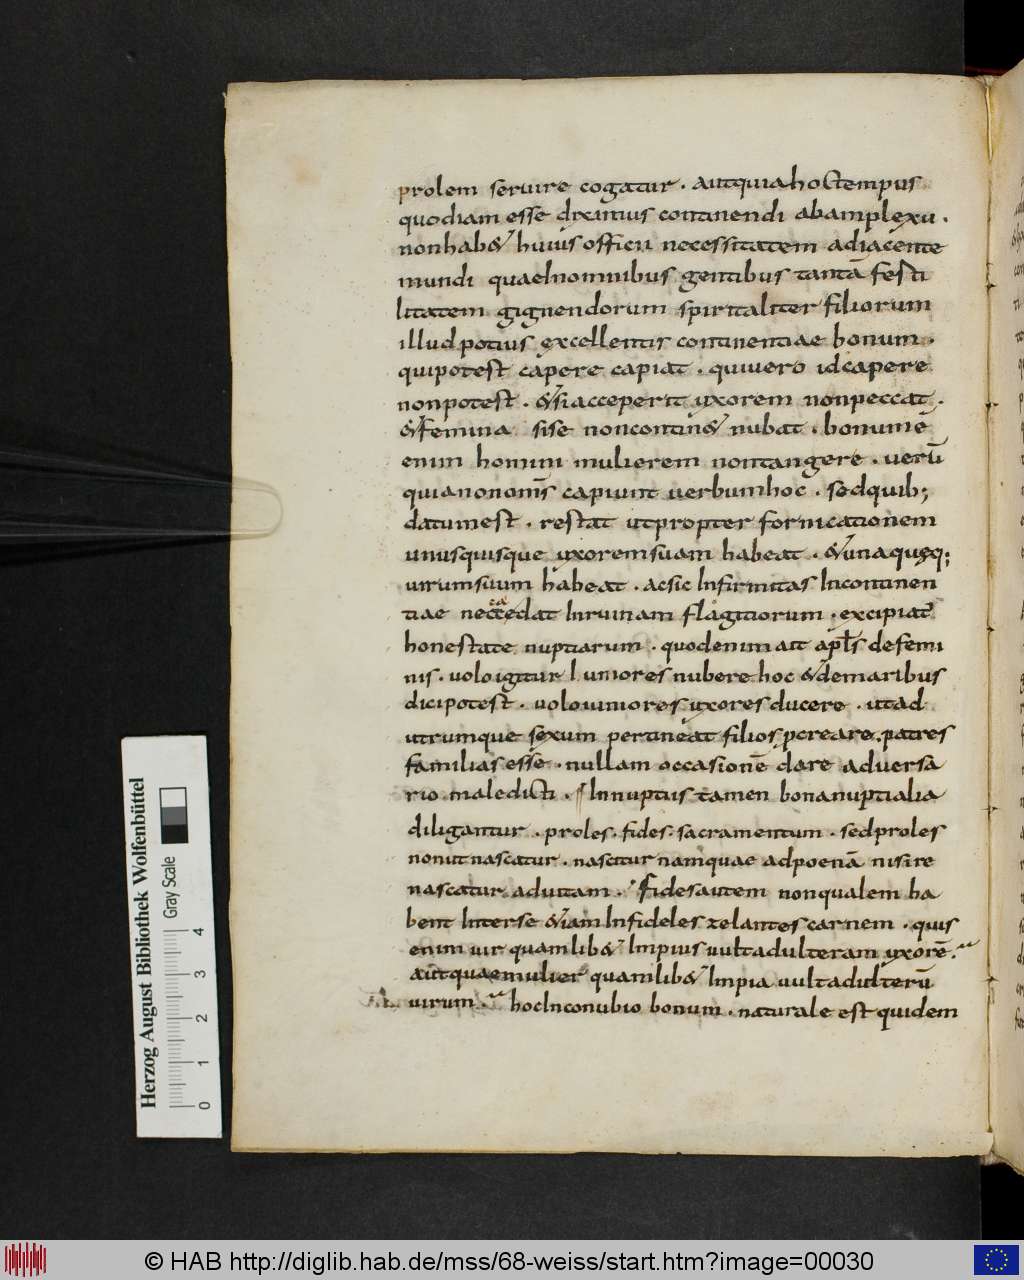 prolem seruire cogatur . autquiahoctempus
quodiam esse diximus continendi abamplexu .
nonhab& huius officii necessitatem adiacente
mundi quaeInomnibus gentibus tantā festi
litatem gignendorum spiritaliter filiorum
illudpotius excellentis continentiae bonum .
quipotest capere capiat . quiuero idcapere
nonpotest . &siacceperit yxorem nonpeccat .
&femina sise noncontin& nubat . bonume
enim homini mulierem nontangere . uerū
quianonomīs capiunt uerbumhoc . sedquib;
datumest . restat utpropter fornicationem
unusquisque yxoremsuam habeat . &unaquęq;
uirumsuum habeat . acsic Infirmitas Incontinen
tiae necędat Inruinam flagitiorum . excipiat
honestate nuptiarum . quodenim ait apłs defemi
nis . uoloigitur Iuniores nubere hoc &demaribus
dicipotest . uoloiuniores yxores ducere . utad
utrumque sexum pertineat filios pcreare . patres
familias esse . nullam occasionē dare aduersa
rio maledicti . Innuptiis tamen bonanuptialia
diligantur . proles . fides . sacramentum . sedproles
nonutnascatur . nascitur namquae adpoenā nisire
nascatur aduitam . Fidesautem nonqualem ha
bent Interse &iam Infideles zelantes carnem . quis
enim uir quamlib& Impius uultadulteram yxorē .
autquaemulier quamlib& Impia uultadulterū
uirum . hocInconubio bonum . naturale est quidem
Herzog August Bibliothek Wolfenbüttel
Gray Scale
0 1 2 3 4
© HAB http://diglib.hab.de/mss/68-weiss/start.htm?image=00030